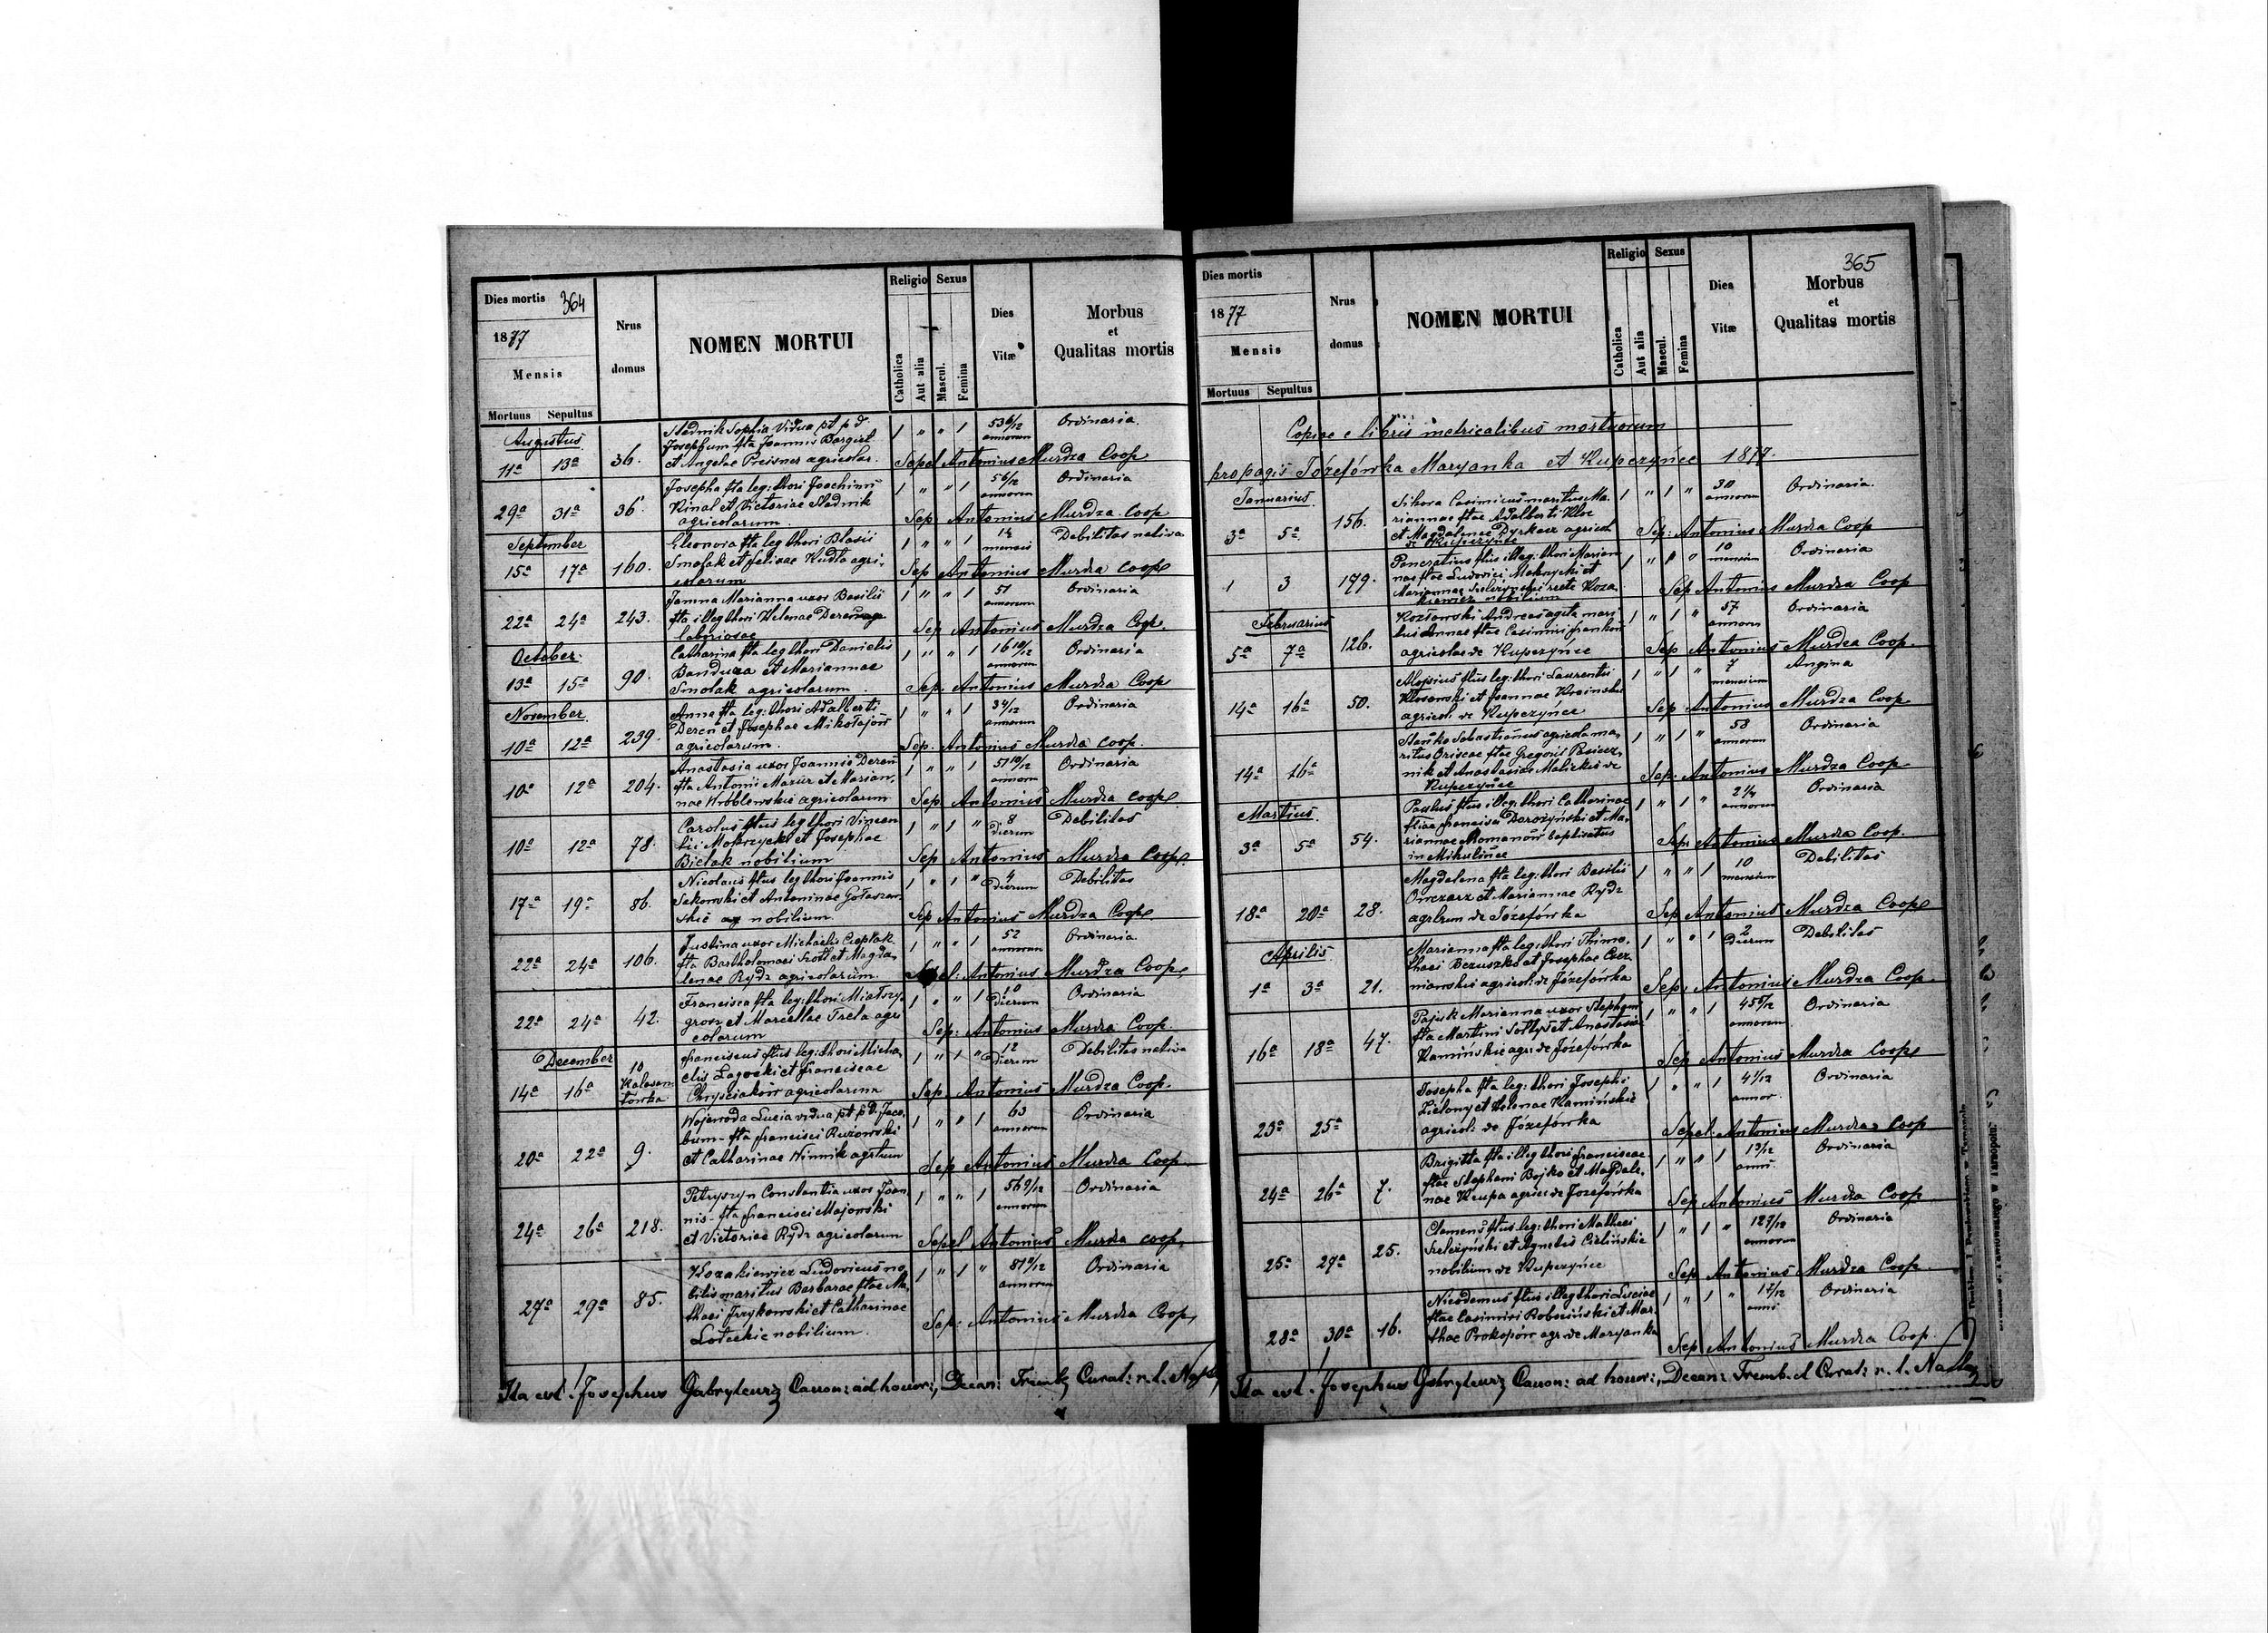 Dies mortis 364
1877
Mensis
Mortuus Sepultus
Nrus
domus
NOMEN MORTUI
Religio
Catholica
Aut alia
Sexus
Mascul.
Femina
Dies
Vitæ
Morbus
et
Qualitas mortis
Augustus
11a 13a 36.
Sladnik Sophia vidua pt p d
Josephum fta Joannis Bargiel
et Angelae Preisner agricolar.
1 " " 1 53 6/12 annorum Ordinaria.
Sepel Antonius Murdza Coop
29a 31a 36.
Josepha fta leg: thori Joachimi
Kinal et Victoriae Sladnik
agricolarum.
1 " " 1 5 6/12 annorum Ordinaria
Sep. Antonius Murdza Coop
September
15a 17a 160.
Eleonora fta leg thori Blasii
Smolak et Felixae Kudła agri-
colarum
1 " " 1 mensis Debilitas nativa
Sep Antonius Murdza Coop
22a 24a 243.
Jamna Marianna uxor Basilii
fta illeg thori Helenae
laboriosae
1 " " 1 51 annorum Ordinaria
Sep. Antonius Murdza Coop.
October
13a 15a 90.
Catharina fta leg thori Danielis
Banduza et Mariannae
Smolak agricolarum.
1 " " 1 16 10/12 annorum Ordinaria
Sep. Antonius Murdza Coop
November
10a 12a 239.
Anna fta leg: thori Adalberti
Dereń et Josephae Mikołajów
agricolarum.
1 " " 1 3 4/12 annorum Ordinaria
Sep. Antonius Murdza Coop.
10a 12a 204.
Anastasia uxor Joannis Dereń
fta Antonii Mazur et Marian-
nae Wróblewskie agricolarum
1 " " 1 57 10/12 annorum Ordinaria
Sep. Antonius Murdza Coop.
10a 12a 78.
Carolus ftus leg thori Vincen
tii Mokrzycki et Josephae
Bielak nobilium
1 " 1 " 8 Dierum Debilitas
Sep Antonius Murdza Coop
17a 19a 86.
Nicolaus ftus leg thori Joannis
Sekowski et Antoninae Gołaszew-
skie nobilium.
1 " 1 " 4 Dierum Debilitas
Sep Antonius Murdza Coop
22a 24a 106.
Justina uxor Michaelis Czepłak
fta Bartholomaei Szott et Magda-
lenae Rydz agricolarum.
1 " " 1 52 annorum Ordinaria.
Sepel: Antonius Murdza Coop
22a 24a 42.
Francisca fta leg: thori
et Marcellae Trela agri
colarum
1 " " 1 10 Dierum Ordinaria
Sep: Antonius Murdza Coop.
December
14a 16a 10
Franciscus ftus leg: thori Micha-
elis et Franciscae
Chryściaków agricolarum
1 " 1 " 12 Dierum Debilitas nativa
Sep. Antonius Murdza Coop.
20a 22a 9.
Wojewoda Lucia vidua pt p d. Jaco-
bum - fta Francisci Rużowski
et Catharinae Winnik agrlum
1 " " 1 63 annorum Ordinaria
Sep Antonius Murdza Coop.
24a 26a 218.
Petryszyn Constantia uxor Joan
nis - fta Francisci Majowski
et Victoriae Rydz agricolarum
1 " " 1 56 9/12 annorum Ordinaria
Sepel Antonius Murdza coop.
27a 29a 85.
Kozakiewicz Ludovicus no
bilis maritus Barbarae ftae Ma-
thaei Frzykowski et Catharinae
Loteckie nobilium.
1 " 1 " annorum Ordinaria
Sep: Antonius Murdza Coop,
Ita est! Josephus Gabrylewicz Canon: ad honor:, Decan: Tremb. Curat: r. l.
Dies mortis
1877
Mensis
Mortuus Sepultus
Nrus
domus
NOMEN MORTUI
Religio
Catholica
Aut alia
Sexus
Mascul.
Femina
Dies
Vitæ
365
Morbus
et
Qualitas mortis
Copiae e libris metricalibus mortuorum
pro pagis Józefówka Maryanka et Kupczyńce 1877.
Januarius
3a 5a 156.
Sikora Casimirus maritus Ma-
riannae ftae Adalberti Kloc
et Magdalenae Dyrkacz agricol
de Kupczyńce
1 " 1 " 30 annorum Ordinaria.
Sep: Antonius Murdza Coop
1 3 179.
Pancratius ftus illeg: thori Marian
nae ftae Ludovici Mokrzycki et
Mariannae Szelczyńskie recte Koza
kiewicz nobilium
10 mensium Ordinaria
Sep Antonius Murdza Coop
Februarius
5a 7a 126.
Kozłowski Andreas agrla mari
tus Annae ftae Casimiri Franków
agricolae de Kupczyńce
1 " 1 " 57 annorum Ordinaria
Sep Antonius Murdza Coop.
14a 16a 50.
Aloysius ftus leg: thori Laurentii
Kłosowski et Joannae Krainskie
agricol: de Kupczyńce
1 " 1 " 7 mensium Angina
Sep Antonius Murdza Coop
14a 16a
Stańko Sebastianus agricola ma-
ritus ftae Gregorii
nik et Anastasiae Malickie de
Kupczyńce
1 " 1 " 58 annorum Ordinaria
Sep: Antonius Murdza Coop
Martius
3a 5a 54.
Paulus ftus illeg: thori Catharinae
ftiae Francisci Dorożyński et Ma-
riannae Romanów baptisatus
in Mikulińce
1 " 1 " annorum Ordinaria
Sep: Antonius Murdza Coop.
18a 20a 28.
Magdalena fta leg: thori Basilii
Owczarz et Mariannae Rydz
agrlrum de Józefówka
1 " " 1 10 mensium Debilitas
Sep Antonius Murdza Coop
Aprilis
1a 3a 21.
Marianna fta leg: thori Thimo-
thaei Bezuszko et Josephae Czer-
niawskie agricol: de Józefówka
1 " " 1 2 Dierum Debilitas
Sep: Antonius Murdza Coop.
16a 18a 47.
Pajuk Marianna uxor Stephani
fta Martini Sołtys et Anastasiae
Kamińskie agr: de Józefówka
1 " " 1 45 6/12 annorum Ordinaria
Sep Antonius Murdza Coop
23a 25a
Josepha fta leg: thori Josephi
Zielony et Helenae Kamińskie
agricol: de Józefówka
1 " " 1 4 1/12 annor. Ordinaria
Sepel. Antonius Murdza Coop
24a 26a 7.
Brigitta fta illeg thori Franciscae
ftae Stephani Bojko et Magdale-
nae Krupa agric: de Józefówka
1 " " 1 1 3/12 anni. Ordinaria
Sep Antonius Murdza Coop
25a 27a 25.
Clemens ftus leg: thori Mathaei
Szelczyński et Agnetis Cielińskie
nobilium de Kupczyńce
1 " 1 " 12 7/12 annorum Ordinaria
Sep Antonius Murdza Coop.
28a 30a 16.
Nicodemus ftus illeg thori Luciae
ftae Casimiri et Mar-
thae Prokopów agr: de Maryanka
1 " 1 " anni Ordinaria
Sep Antonius Murdza Coop.
Ita est! Josephus Gabrylewicz Canon: ad honor:, Decan: Tremb. et Curat: r. l.